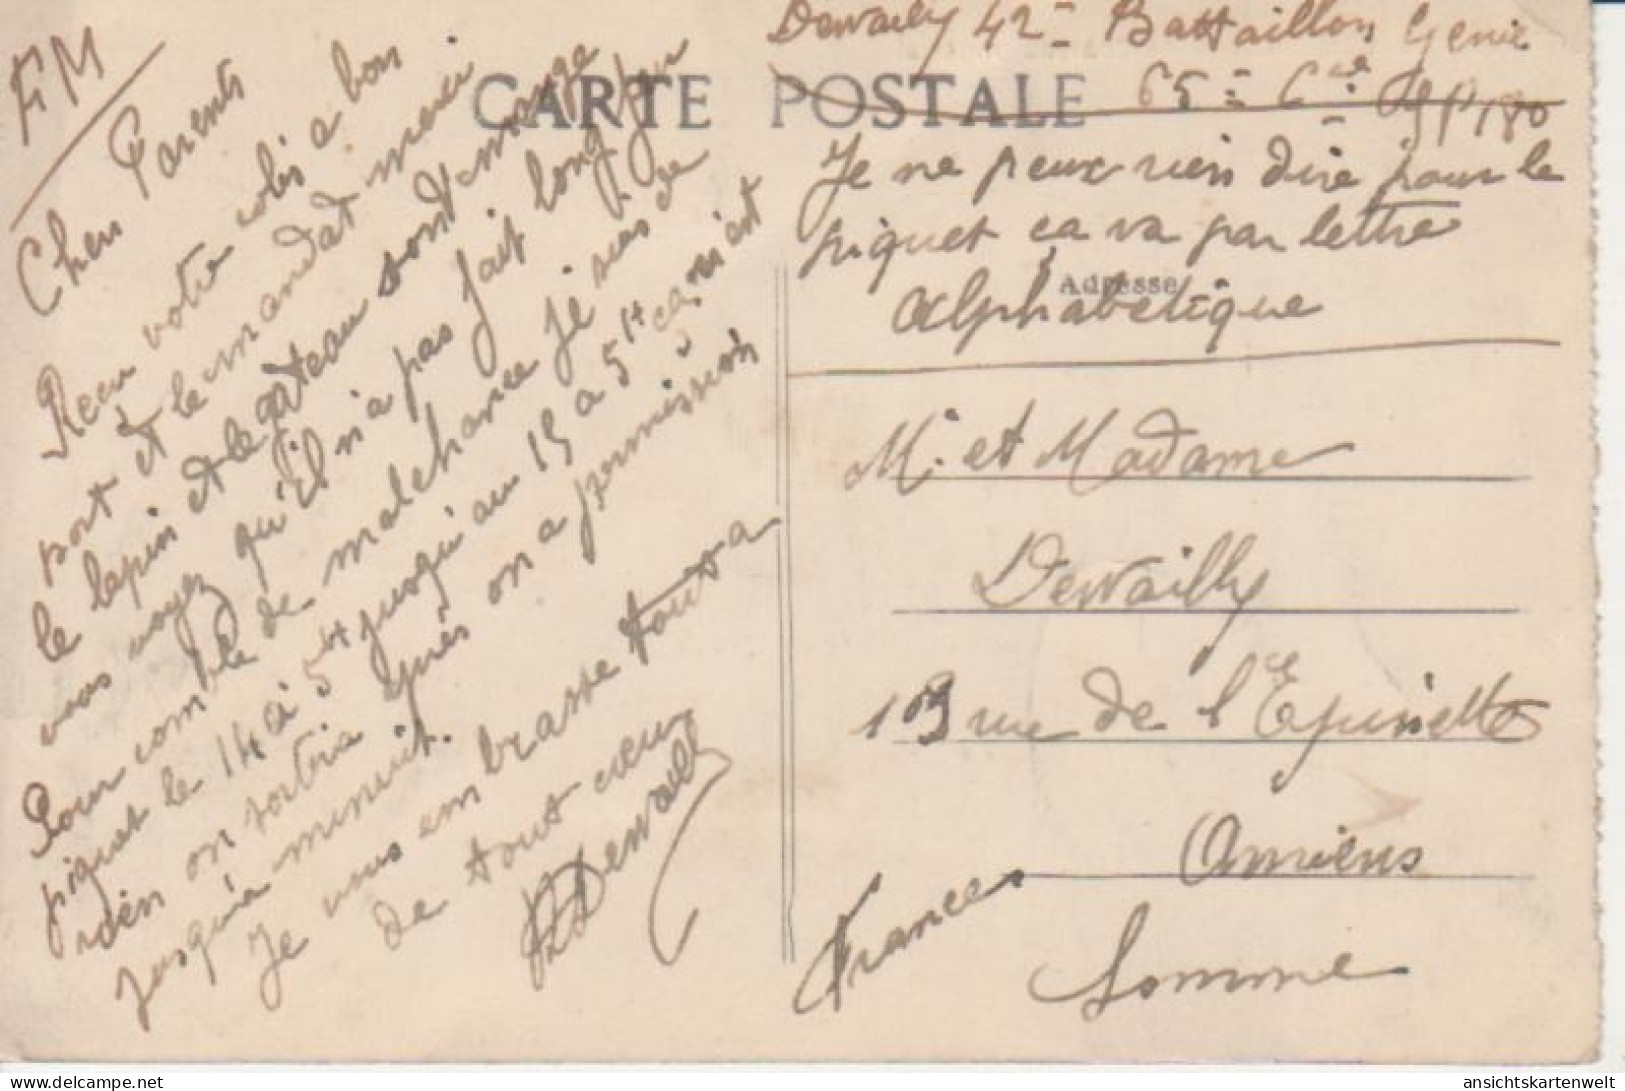 FM
Chers Parents
Recu votre colis a bon
port et le mandat merci
le lapin et le gateau sont mangé
vous voyez qu'il n'a pas fait long feu
Pour comble de malchance je suis de
piquet le 14 à 5H jusqu'au 15 a 5H ca n'est
rien on sortira après on a permission
jusqu'a minuit.
Je vous embrasse tous
de tout coeur
Dewailly
CARTE POSTALE
Dewailly 42e Battaillon Genie
65e Cie SP 180
Je ne peux rien dire pour le
piquet ca va par lettre
Adresse
alphabetique
Mr. et Madame
Dewailly
109 rue de l'Epinette
Amiens
Somme
France
© www.delcampe.net
ansichtskartenwelt